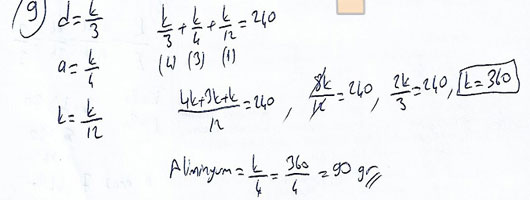 9) d = k/3
k/3 + k/4 + k/12 = 240
a = k/4
(4) (3) (1)
k = k/12
4k+3k+k/12 = 240 , 8k/12 = 240 , 2k/3 = 240 , k = 360
Aliminyum = k/4 = 360/4 = 90 gr